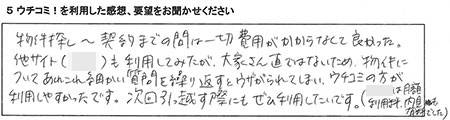 5 ウチコミ！を利用した感想、要望をお聞かせください
物件探し～契約までの間は一切費用がかからなくて良かった。
他サイト(　　)も利用してみたが、大家さん直ではないため、物件に
ついてあれこれ細かい質問を繰り返すとウザがられてしまい、ウチコミの方が
利用しやすかったです。次回引っ越す際にもぜひ利用したいです。(　　は月額
利用料、内見
有料でした)